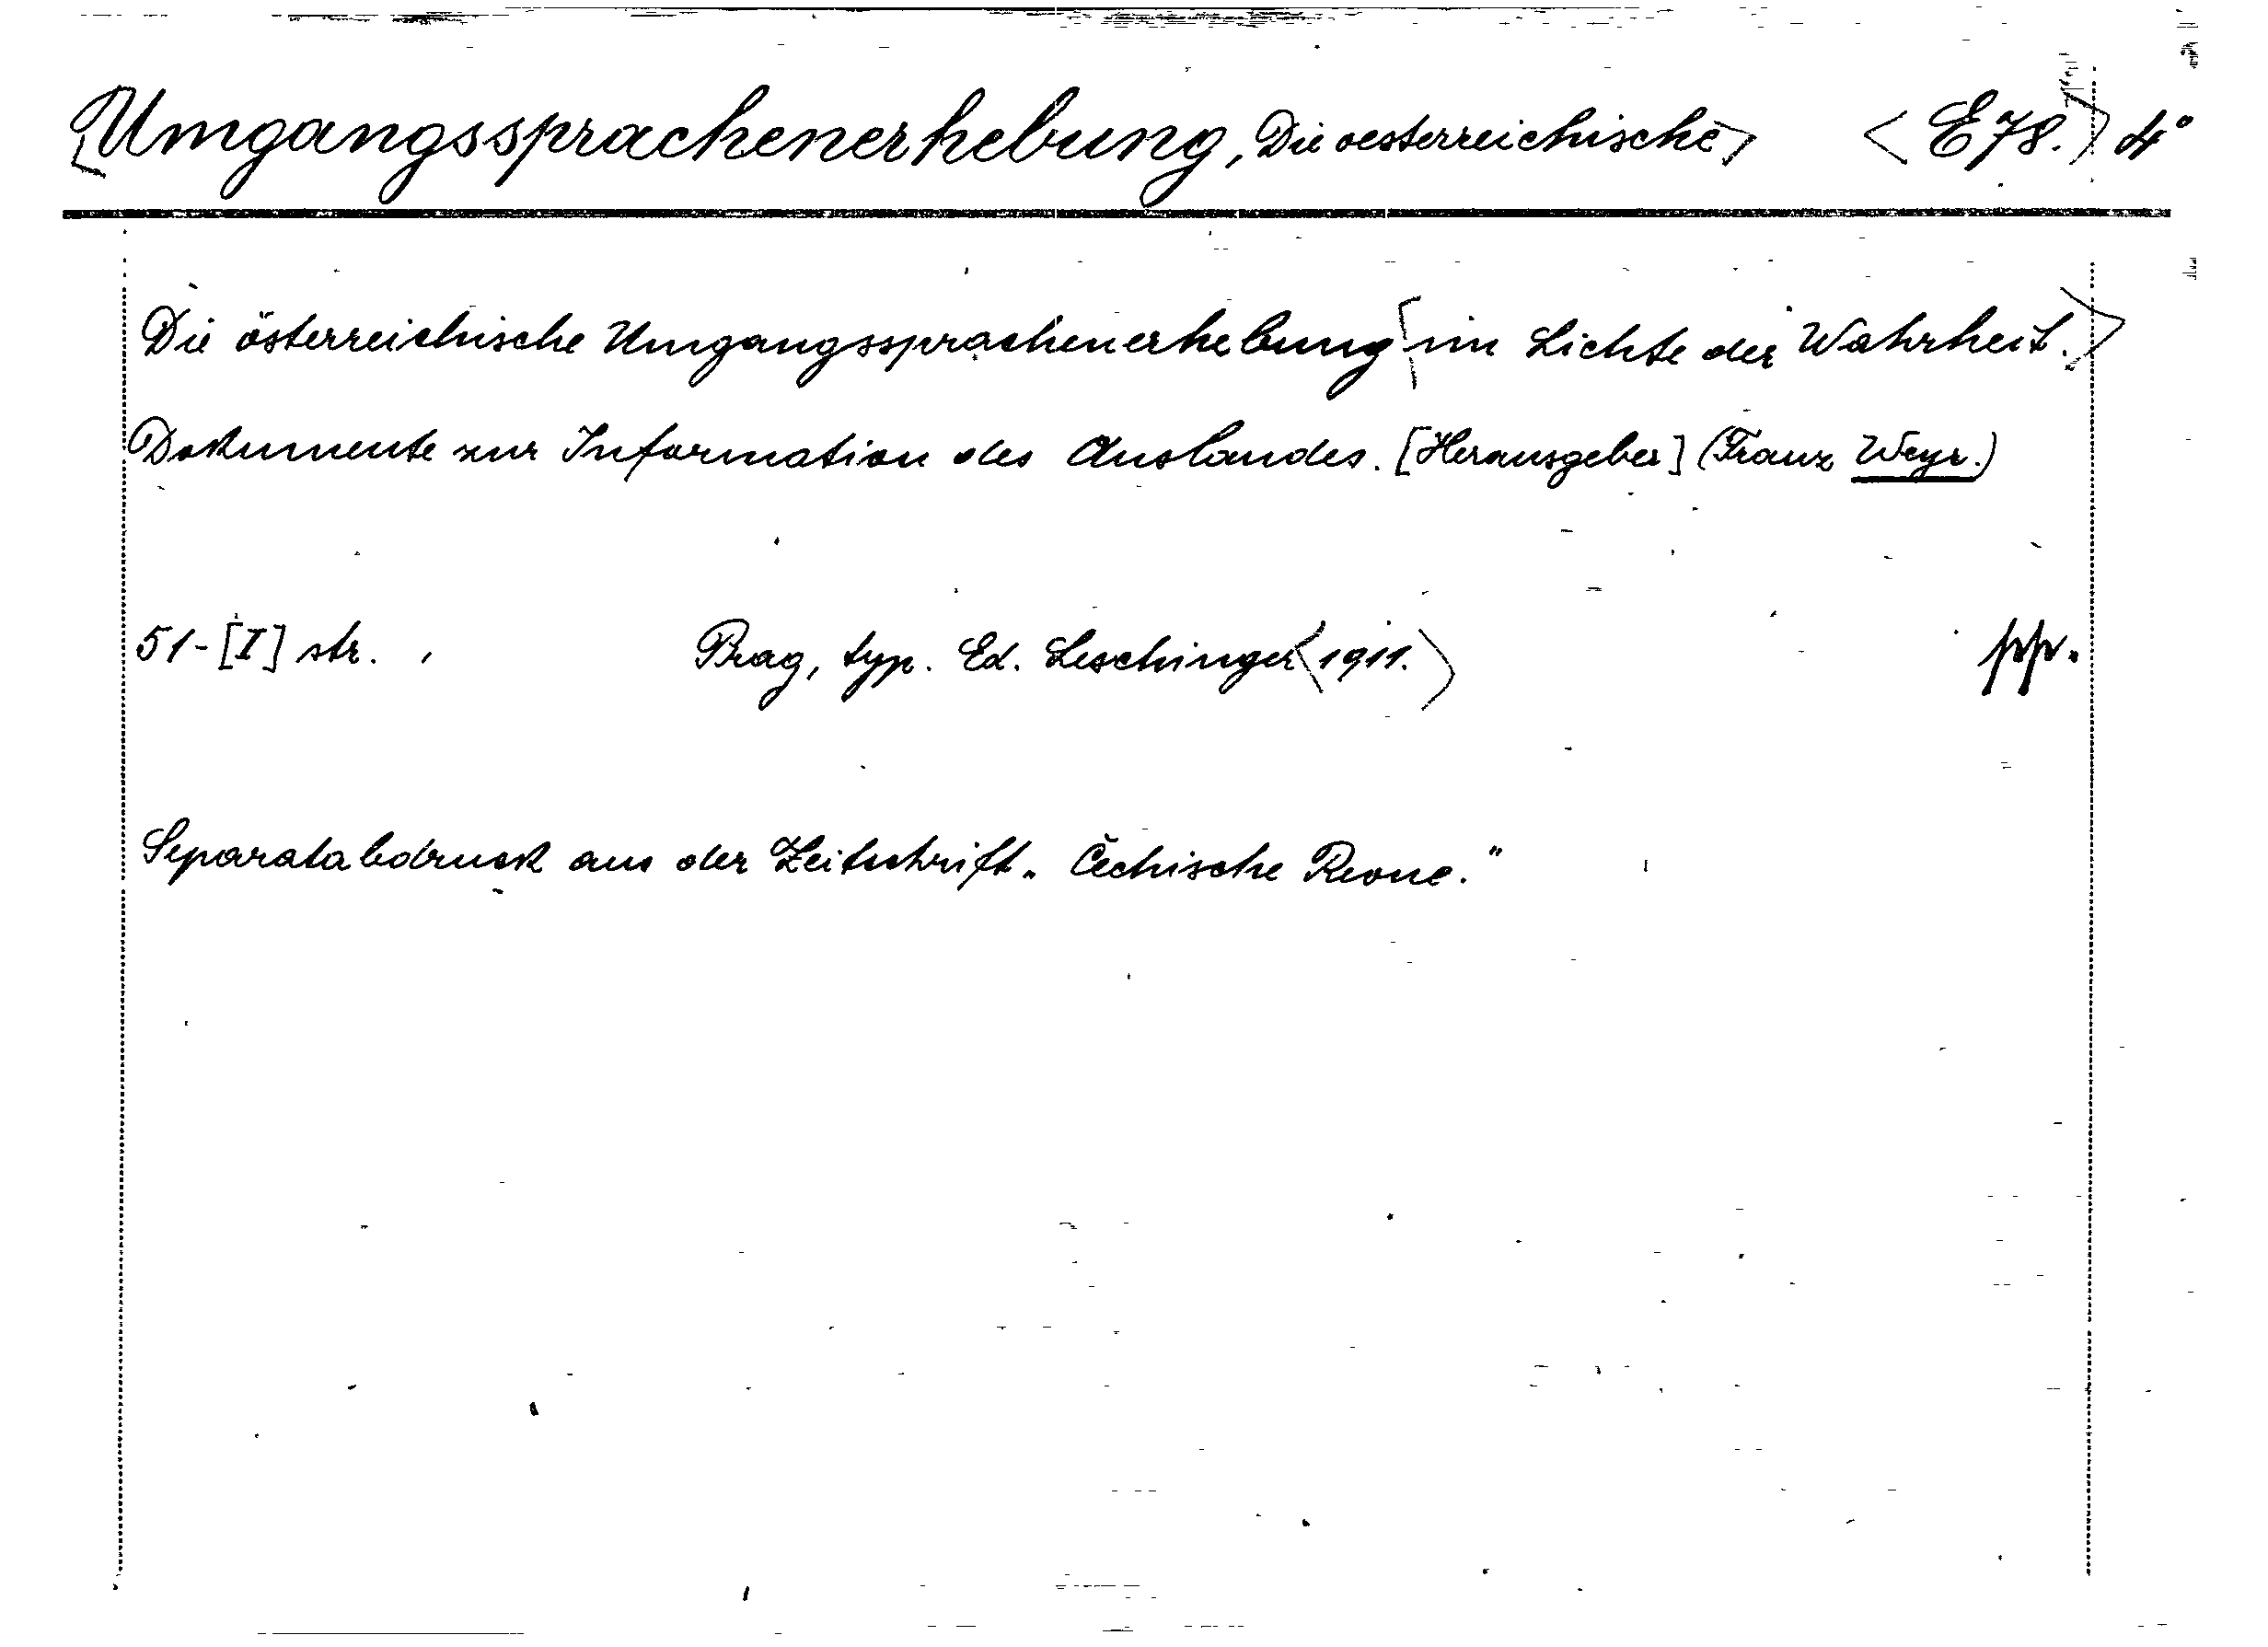 [Umgangssprachenerhebung, Die oesterreichische] <E 78.> 4°
Die österreichische Umgangssprachenerhebung [im Lichte der Wahrheit.>
Dokumente zur Information des Auslandes. [Herausgeber] (Franz Weyr.)
51-[I] str. , Prag, typ. Ed. Leschinger <1911.> pp.
Separatabdruck aus der Zeitschrift „Čechische Revue."